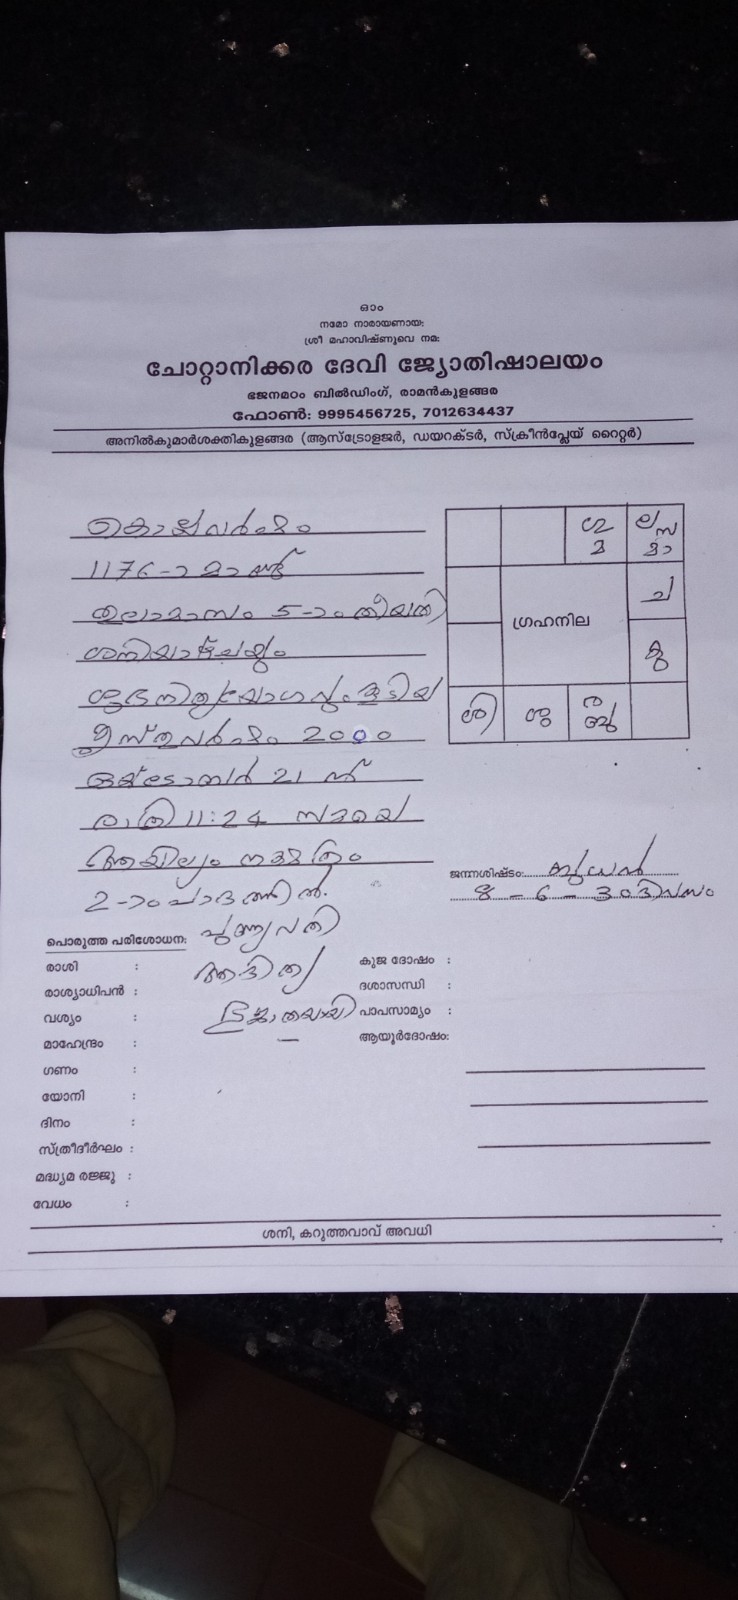 ഓം
നമോ നാരായണായ:
ശ്രീ മഹാവിഷ്ണുവെ നമ:
ചോറ്റാനിക്കര ദേവി ജ്യോതിഷാലയം
ഭജനമഠം ബിൽഡിംഗ്, രാമൻകുളങ്ങര
ഫോൺ: 9995456725, 7012634437
അനിൽകുമാർശക്തികുളങ്ങര (ആസ്ട്രോളജർ, ഡയറക്ടർ, സ്ക്രീൻപ്ലേയ് റൈറ്റർ)
കൊല്ലവർഷം
1176-ാമാണ്ട്
തുലാമാസം 5-ാംതീയതി
ശനിയാഴ്ചയും
ശുഭനിത്യയോഗവുംകൂടിയ
ക്രിസ്തുവർഷം 2000
ഒക്ടോബർ 21 ന്
രാത്രി 11:24 സമയെ
ആയില്യം നക്ഷത്രം
2-ാംപാദത്തിൽ.
മ
ല
മാ
ച
കു
ഗ്രഹനില
ശി
ശു
ര
ബു
ജനനശിഷ്ടം: ബുധൻ
8 - 6 - 30ദിവസം
പൊരുത്ത പരിശോധന: പുണ്യവതി
രാശി :
രാശ്യാധിപൻ :
വശ്യം :
മാഹേന്ദ്രം :
ഗണം :
യോനി :
ദിനം :
സ്ത്രീദീർഘം :
മദ്ധ്യമ രജ്ജു :
വേധം :
ആദിത്യ
കുജ ദോഷം :
ദശാസന്ധി :
പാപസാമ്യം :
ആയൂർദോഷം:
ശനി, കറുത്തവാവ് അവധി